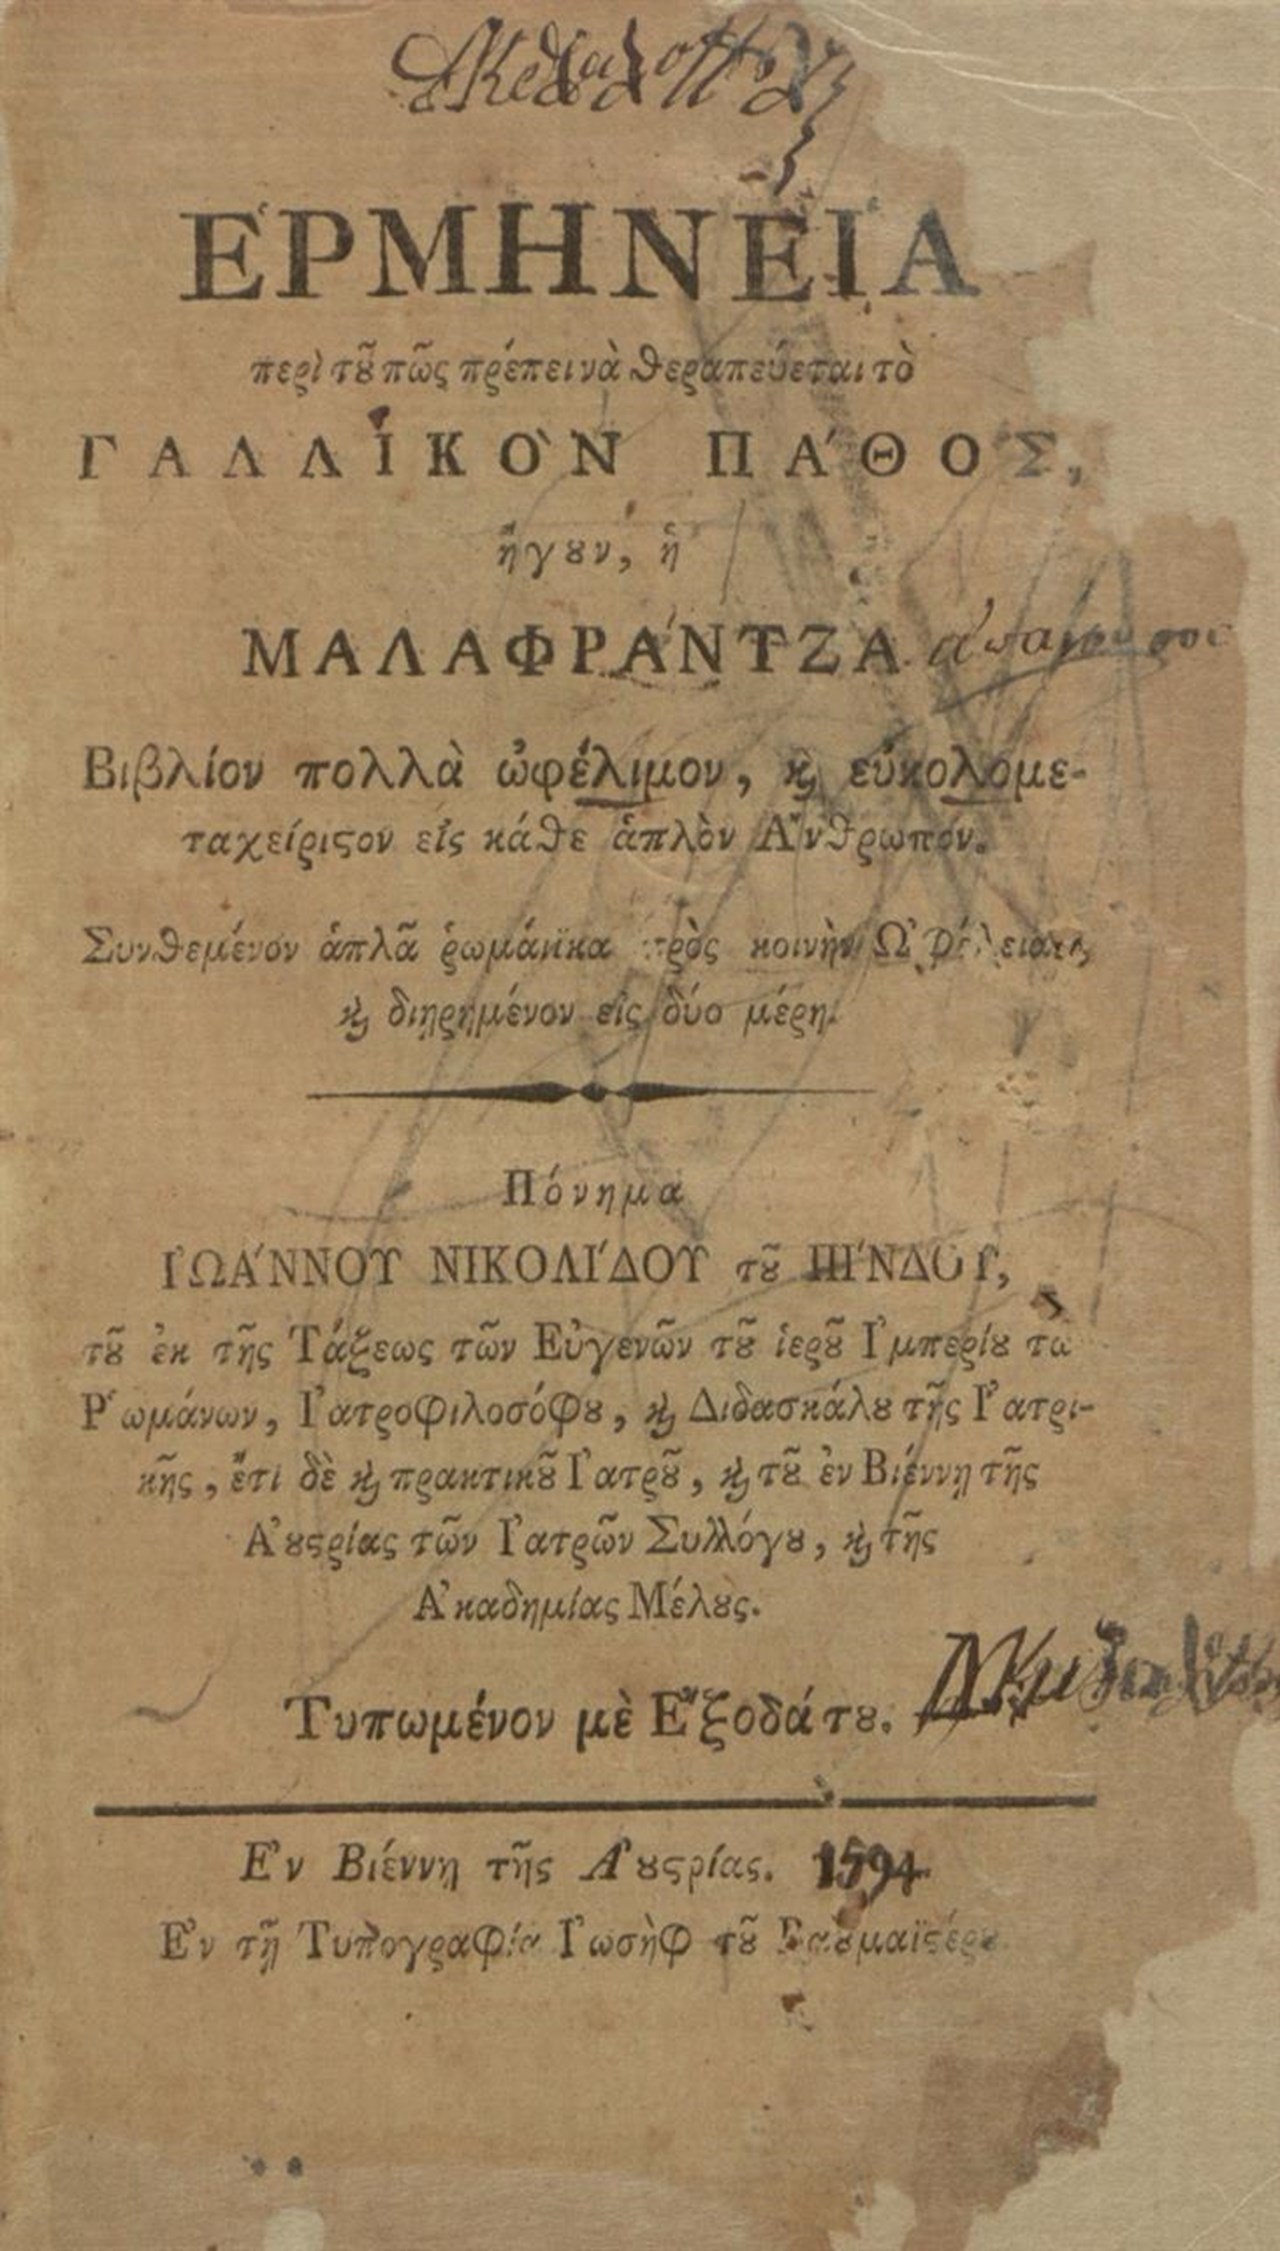 ἙΡΜΗΝΕΊΑ
περὶ τȣ͂ πῶς πρέπει νὰ θεραπεύεται τὸ
ΓΑΛΛΙΚῸΝ ΠΆΘΟΣ,
ἤγουν, ἡ
ΜΑΛΑΦΡΆΝΤΖΑ
Βιβλίον πολλὰ ὠφέλιμον, ϗ εὐκολομε-
ταχείριϛον εἰς κάθε ἁπλὸν Ἄνθρωπον.
Συνθεμένον ἁπλᾶ ῥωμάϊκα πρὸς κοινὴν Ὠφέλειαν,
ϗ διῃρημένον εἰς δύο μέρη.
Πόνημα
ἸΩΆΝΝΟΥ ΝΙΚΟΛΊΔΟΥ τȣ͂ ΠΊΝΔΟΥ,
τȣ͂ ἐκ τῆς Τάξεως τῶν Εὐγενῶν τȣ͂ ἱερȣ͂ Ἰμπερίȣ τῶ
Ῥωμάνων, Ἰατροφιλοσόφȣ, ϗ Διδασκάλȣ τῆς Ἰατρι-
κῆς, ἔτι δὲ ϗ πρακτικȣ͂ Ἰατρȣ͂, ϗ τȣ͂ ἐν Βιέννῃ τῆς
Ἀȣϛρίας τῶν Ἰατρῶν Συλλόγȣ, ϗ τῆς
Ἀκαδημίας Μέλȣς.
Τυπωμένον μὲ Ἔξοδά τȣ.
Ἐν Βιέννῃ τῆς Ἀȣϛρίας. 1794
Ἐν τῇ Τυπογραφίᾳ Ἰωσὴφ τȣ͂ Βαȣμαϊϛέρȣ